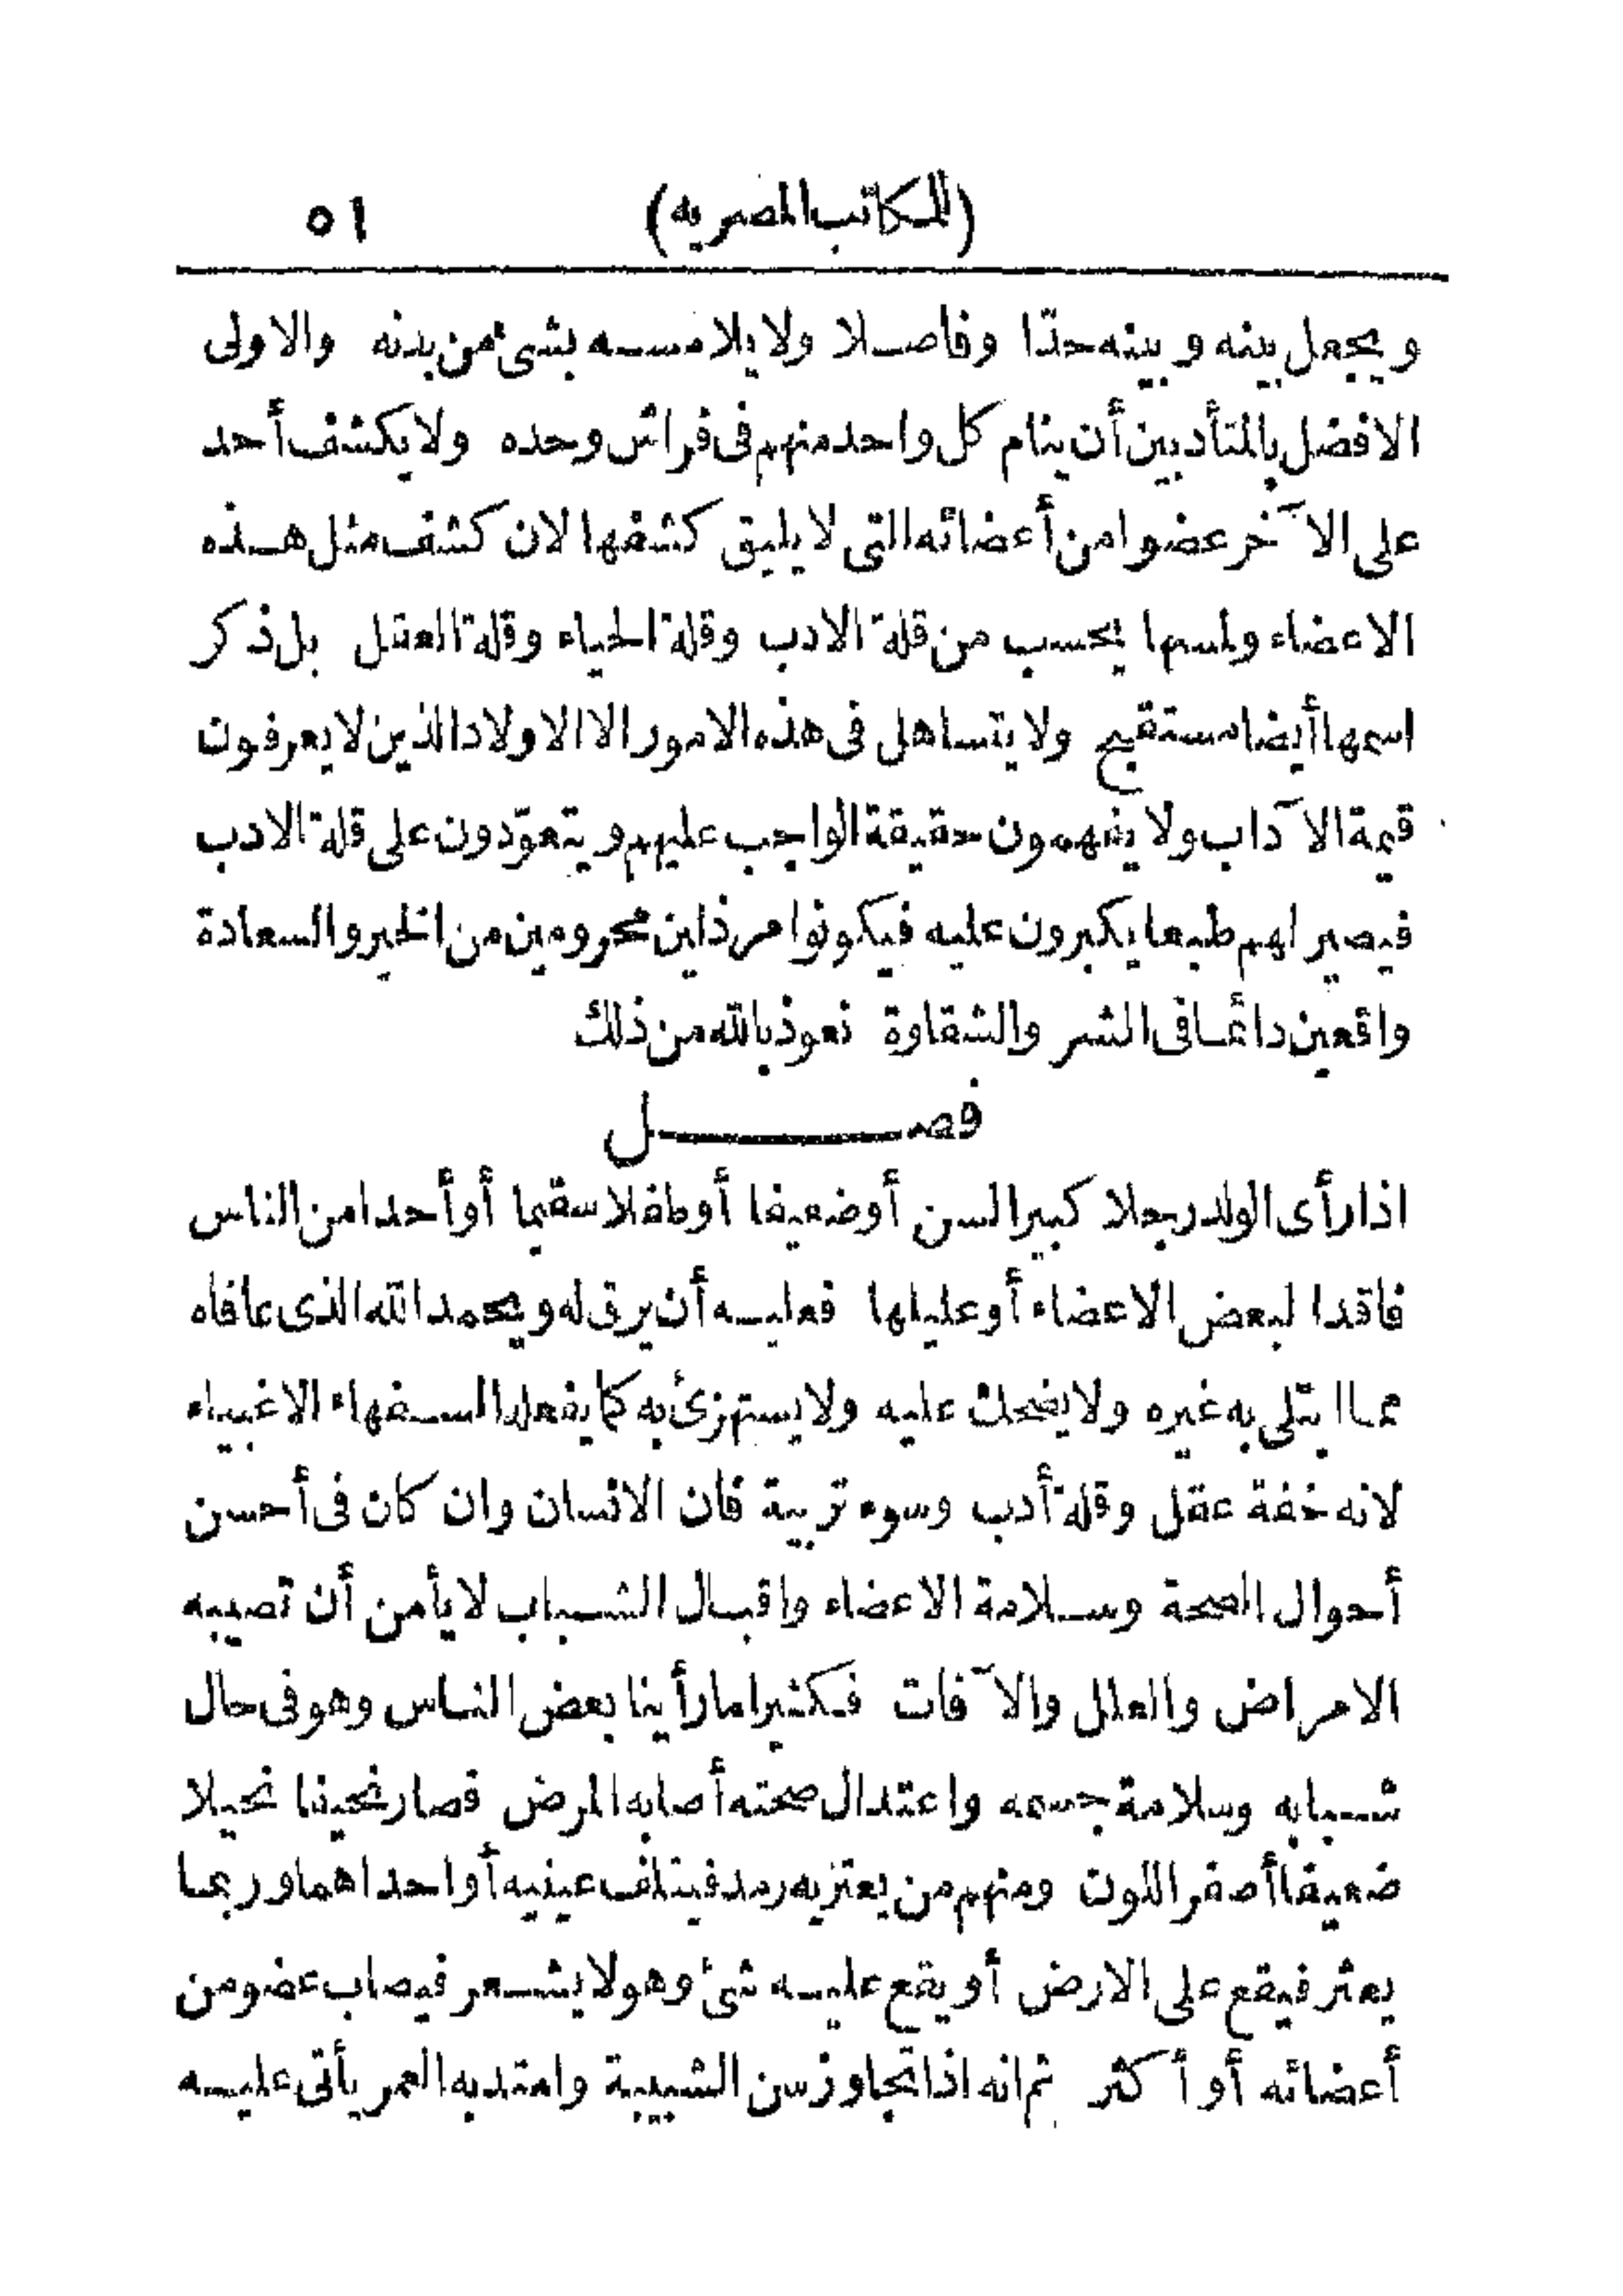 (للمكاتب المصريه) ٥١
ويجعل بينه وبينه حدّا وفاصلا ولا يلامسه بشئ من بدنه والاولى
الافضل بالمتأدبين أن ينام كل واحد منهم فى فراش وحده ولا يكشف أحد
على الآخر عضوا من أعضائه التى لا يليق كشفها لان كشف مثل هذه
الاعضاء ولمسها يحسب من قلة الادب وقلة الحياء وقلة العقل بل ذكر
اسمها أيضا مستقبح ولا يتساهل فى هذه الامور الا الاولاد الذين لا يعرفون
قيمة الآداب ولا يفهمون حقيقة الواجب عليهم ويتعوّدون على قلة الادب
فيصير لهم طبعا يكبرون عليه فيكونوا مرذلين محرومين من الخير والسعادة
واقعين دائما فى الشر والشقاوة نعوذ بالله من ذلك
فصل
اذا رأى الولد رجلا كبير السن أو ضعيفا أو طفلا سقيما أو أحدا من الناس
فاقدا لبعض الاعضاء أو عليلها فعليه أن يرق له ويحمد الله الذى عافاه
مما ابتلى به غيره ولا يضحك عليه ولا يستهزئ به كما يفعل السفهاء الاغبياء
لانه خفة عقل وقلة أدب وسوء تربية فان الانسان وان كان فى أحسن
أحوال الصحة وسلامة الاعضاء واقبال الشباب لا يأمن أن تصيبه
الامراض والعلل والآفات فكثيرا ما رأينا بعض الناس وهو فى حال
شبابه وسلامة جسمه واعتدال صحته أصابه المرض فصار نحيفا نحيلا
ضعيفا أصفر اللون ومنهم من يعتريه رمد فيتلف عينيه أو احداهما وربما
يعثر فيقع على الارض أو يقع عليه شئ وهو لا يشعر فيصاب عضو من
أعضائه أو أكثر ثم انه اذا تجاوز سن الشبيبة وامتد به العمر يأتى عليه